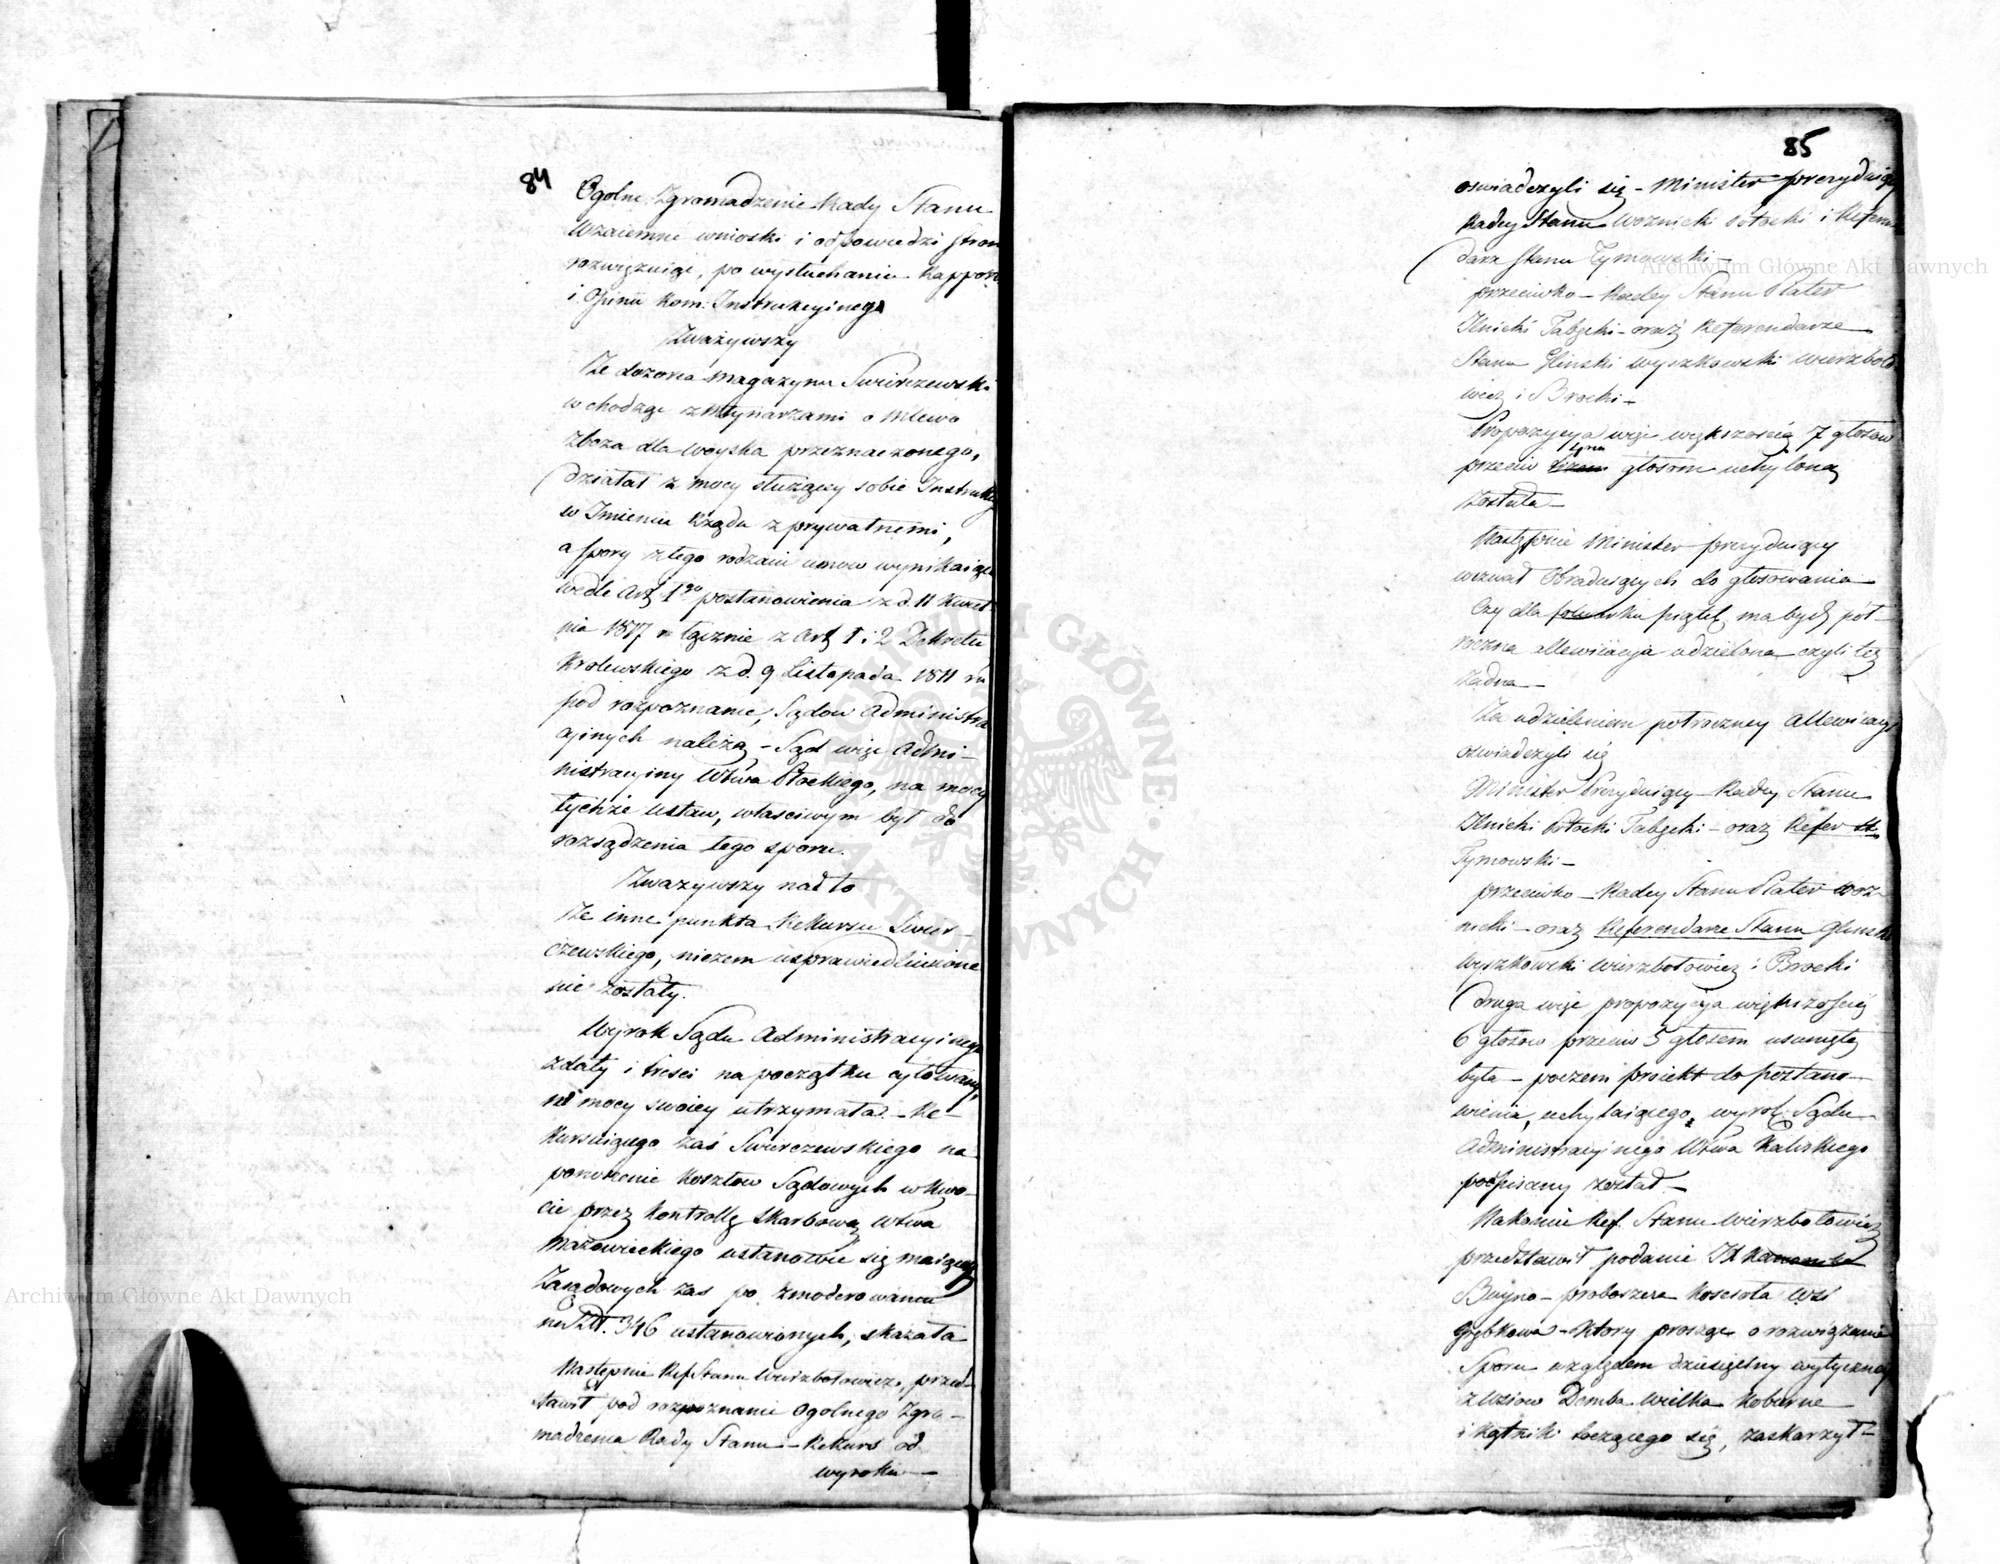 84
Ogolne Zgromadzenie Rady Stanu
wzaiemne wnioski i odpowiedzi stron
rozwężaiąc, po wysłuchaniu Rapport
i Opinii Kom: Instrukcyinego
Zważywszy
Że dozorca magazynu Swierczewski
wchodząc z młynarzami o mlewo
zboża dla woyska przeznaczonego,
działał z mocy służącey sobie Instrukcyi
w Imieniu Rządu z prywatnemi,
a spory z tego rodzaiu umow wynikaiące
wedle Art 1go postanowienia z d. 11 Kwiet
nia 1817 r łącznie z Art 1 i 2 Dekretu
Krolewskiego z d. 9 Listopada 1811 r.
pod rozpoznanie, Sądow Administra
cyinych należą – Sąd więc Admi-
nistracyiny Wtwa Płockiego, na mocy
tychże ustaw, właściwym był do
rozsądzenia tego sporu.
Zważywszy nadto
Że inne punkta Rekursu Swier-
czewskiego, niczem usprawiedliwione
nie zostały.
Wyrok Sądu Administracyinego
z daty i treści na początku cytowany,
w mocy swoiey utrzymała – Re-
kursuiącego zaś Swierczewskiego na
poniesienie kosztow Sądowych w kwo-
cie przez Kontrollę Skarbową Wtwa
Mazowieckiego ustanowić się maiącey
Zasądowych zaś po zmoderowaniu
na Złt. 346 ustanowionych, skazała
Następnie Ref Stanu Wierzbołowicz, przed-
stawił pod rozpoznanie Ogolnego Zgro-
madzenia Rady Stanu – Rekurs od
wyroku –
85
oswiadczyli się – Minister prezyduiący
Radcy Stanu Woznicki Potocki i Referen
darz Stanu Tymowski –
przeciwko – Radcy Stanu Plater
Ilnicki Tabęcki – oraz Referendarze
Stanu Glinski Wyszkowski Wierzboło
wicz i Brocki –
Propozycya więc większością 7 głosow
przeciw głosom uchyloną
została –
Następnie Minister prezyduiący
wezwał Obraduiących do głosowania
Czy dla folwarku piątek ma bydź pół-
roczna allewiacya udzielona czyli też
żadna –
Za udzieleniem połroczney Allewiacyi
oswiadczyli się
Minister Prezyduiący – Radcy Stanu
Ilnicki Potocki Tabęcki – oraz Refer St.
Tymowski –
przeciwko – Radcy Stanu Plater Woz-
nicki – oraz Referendarze Stanu Glinski
Wyszkowski Wierzbołowicz i Brocki
druga więc propozycya większością
6 głosow przeciw 5 głosom usuniętą
była – poczem proiekt do postano-
wienia, uchylaiącego, wyrok Sądu
Administracyinego Wtwa Kaliskiego
podpisany został –
Nakoniec Ref. Stanu Wierzbołowicz
przedstawił podanie JX
Buyno – proboszcza Kościoła wsi
Grębkowa – ktory prosząc o rozwiązanie
Sporu względem dziesięciny wytyczney
z Wsiow Demba Wielka Koburne
i Kątnik toczącego się, zaskarżył –
Archiwum Główne Akt Dawnych
Archiwum Główne Akt Dawnych
ARCHIWUM GŁÓWNE AKT DAWNYCH